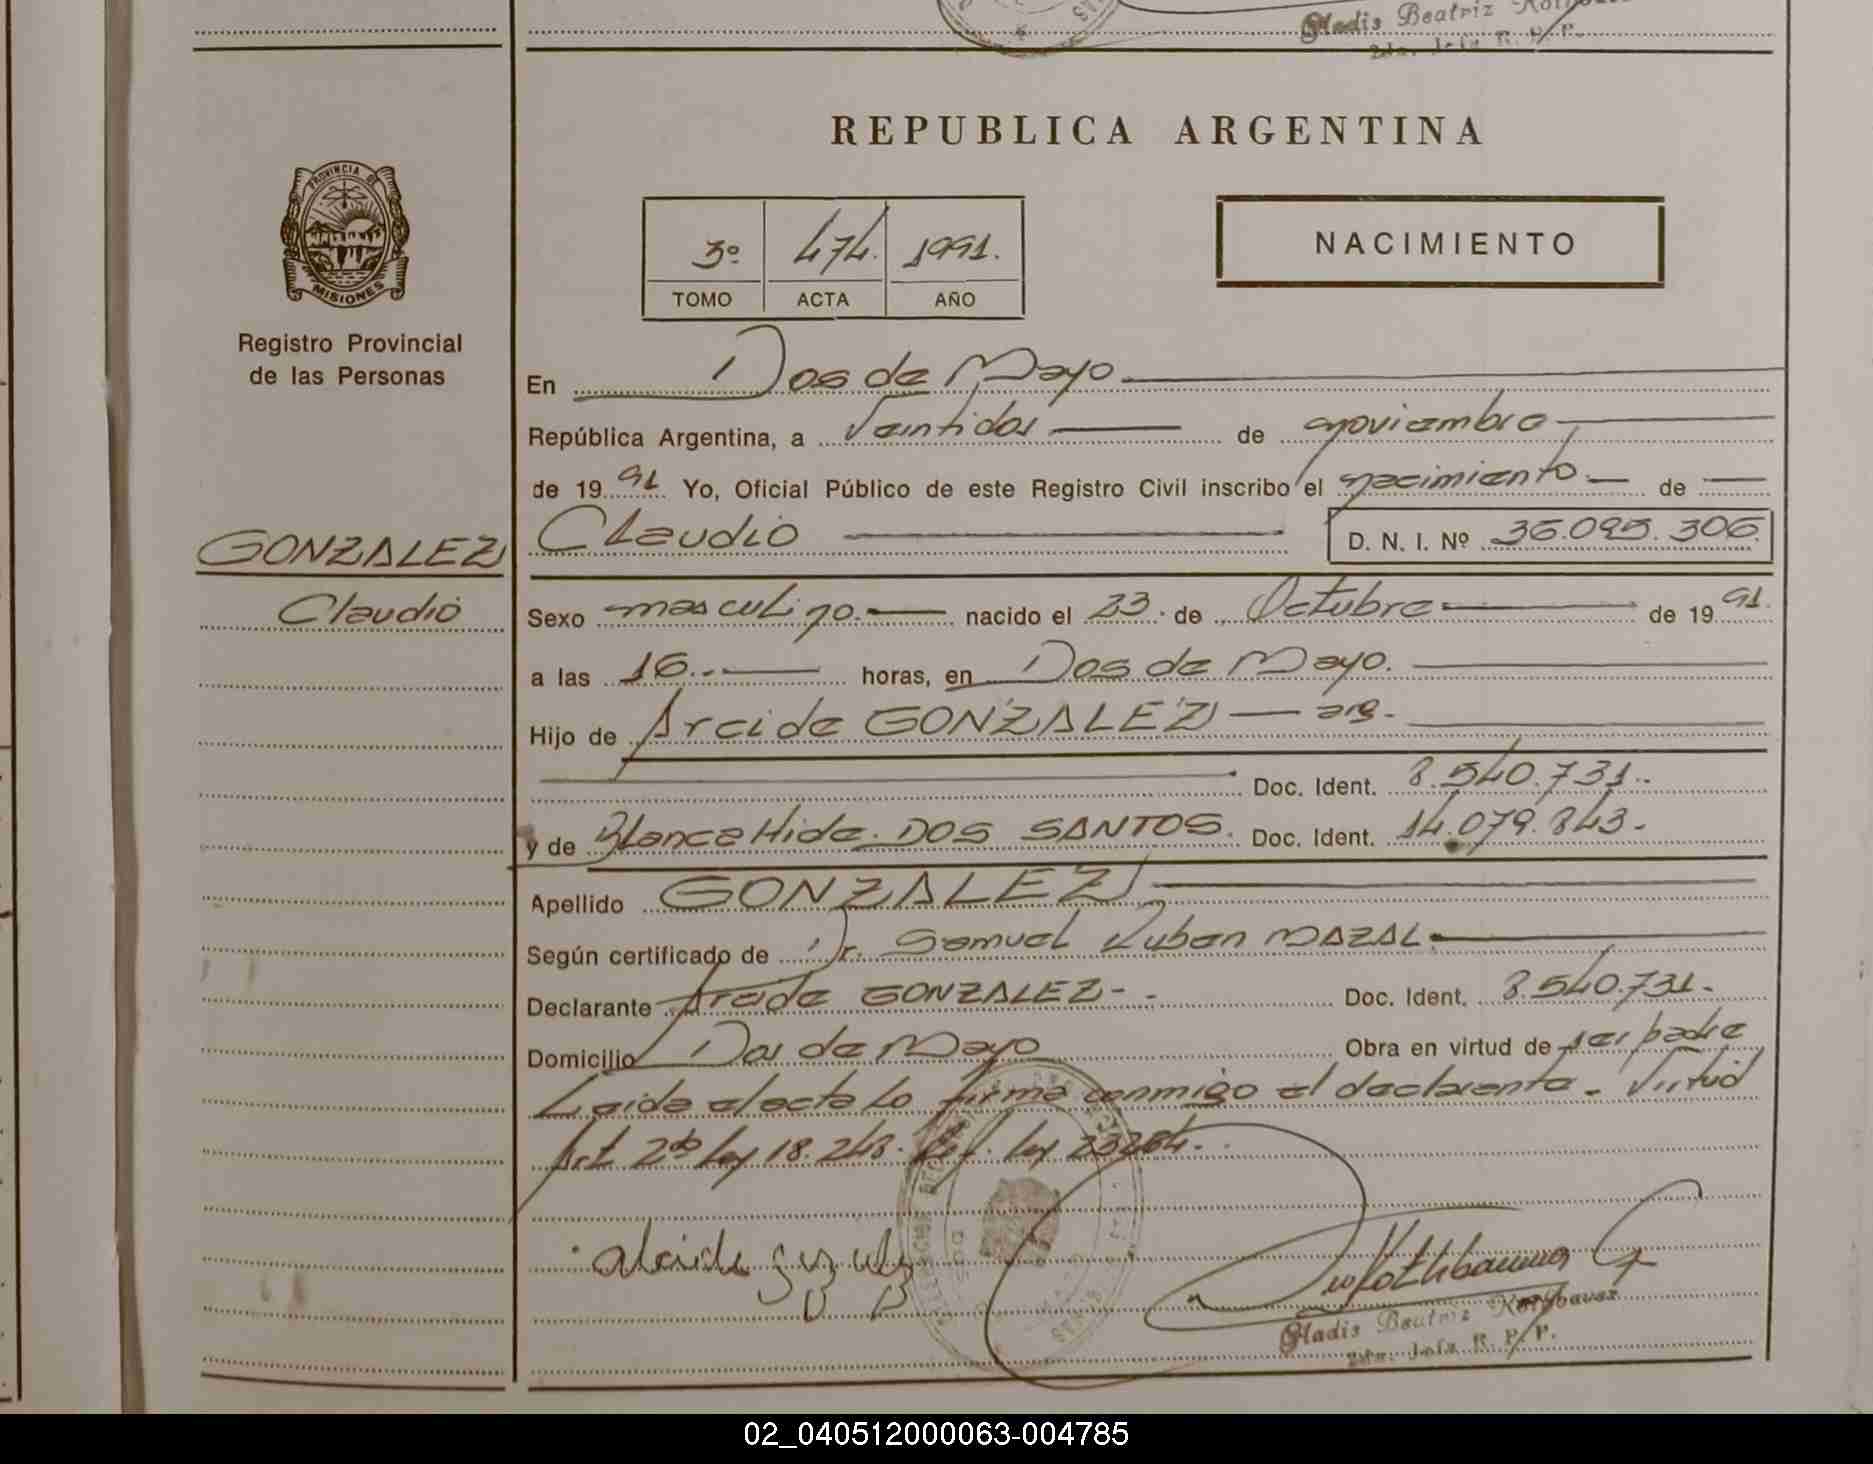 Gladis Beatriz
2da. Jefa R. P. P.
REPUBLICA ARGENTINA
PROVINCIA DE
MISIONES
3º 474. 1991.
TOMO ACTA AÑO
NACIMIENTO
Registro Provincial
de las Personas
En Dos de Mayo
República Argentina, a Veintidos de noviembre
de 1991 Yo, Oficial Público de este Registro Civil inscribo el nacimiento de
GONZALEZ
Claudio
Claudio D. N. I. Nº 36.095.306.
Sexo masculino. nacido el 23. de Octubre de 1991.
a las 16.. horas, en Dos de Mayo.
Hijo de Arcide GONZALEZ arg.
Doc. Ident. 8.540.731.
y de Blanca Hide. DOS SANTOS. Doc. Ident. 14.079.843.
Apellido GONZALEZ
Según certificado de Dr. Samuel Ruben MAZAL.
Declarante Arcide GONZALEZ Doc. Ident. 8.540.731.
Domicilio Dos de Mayo Obra en virtud de ser padre
Leida el acta Lo firma conmigo el declarante. Virtud
Art 2do Ley 18.248. Ley 23264.
Gladis Beatriz
2da. Jefa R. P. P.
02_040512000063-004785